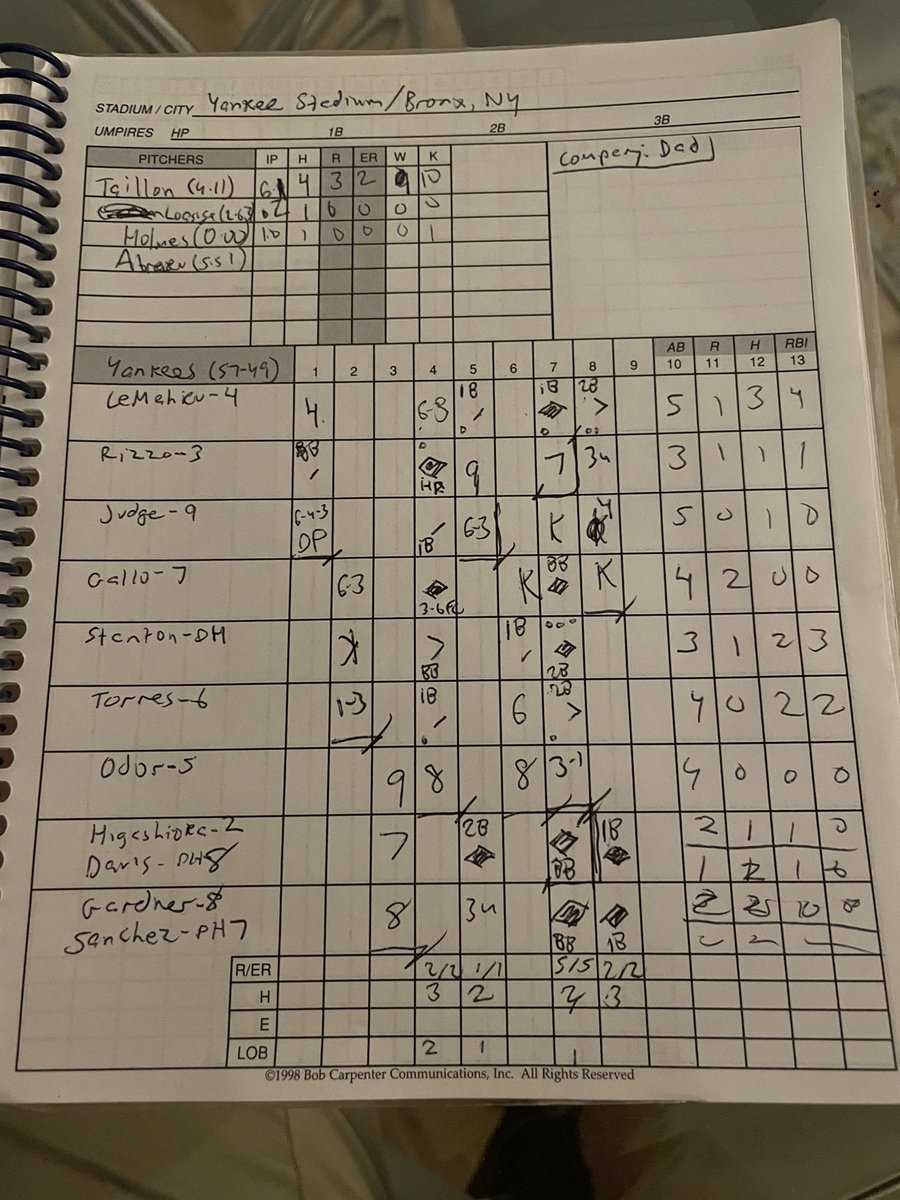 STADIUM / CITY Yankee Stadium/Bronx, NY
UMPIRES HP 1B 2B 3B
PITCHERS IP H R ER W K
Company: Dad
Taillon (4.11) 4 3 2 10
1 0 0 0 0
Holmes (0.00) 1.0 1 0 0 0 1
Abreu (5.51)
AB R H RBI
Yankees (57-49) 1 2 3 4 5 6 7 8 9 10 11 12 13
LeMahieu-4 4 6-3 1B 1B 2B 5 1 3 4
Rizzo-3 BB HR 9 7 3u 3 1 1 1
Judge-9 6-4-3 DP 1B 6-3 K 5 0 1 0
Gallo-7 6-3 3-6FC K BB K 4 2 0 0
Stanton-DH K BB 1B 2B 3 1 2 3
Torres-6 1-3 1B 6 2B 4 0 2 2
Odor-5 9 8 8 3-1 4 0 0 0
Higashioka-2 7 2B BB 1B 2 1 1 0
Davis-PH8 1
Gardner-8 8 3u BB 1B
Sanchez-PH7
R/ER 2/2 1/1 5/5 2/2
H 3 2 2 3
E
LOB 2 1 1
©1998 Bob Carpenter Communications, Inc. All Rights Reserved